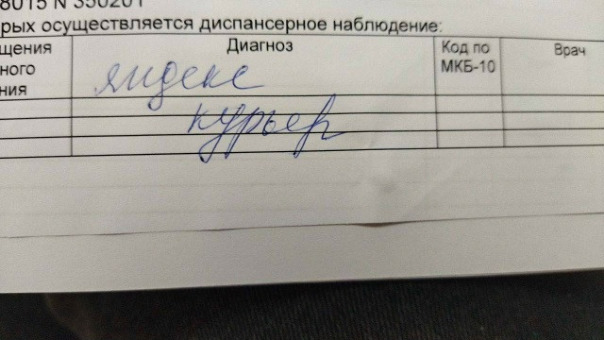 8015 N 350201
рых осуществляется диспансерное наблюдение:
щения
ного
ния
Диагноз
Код по
МКБ-10
Врач
яндекс
курьер